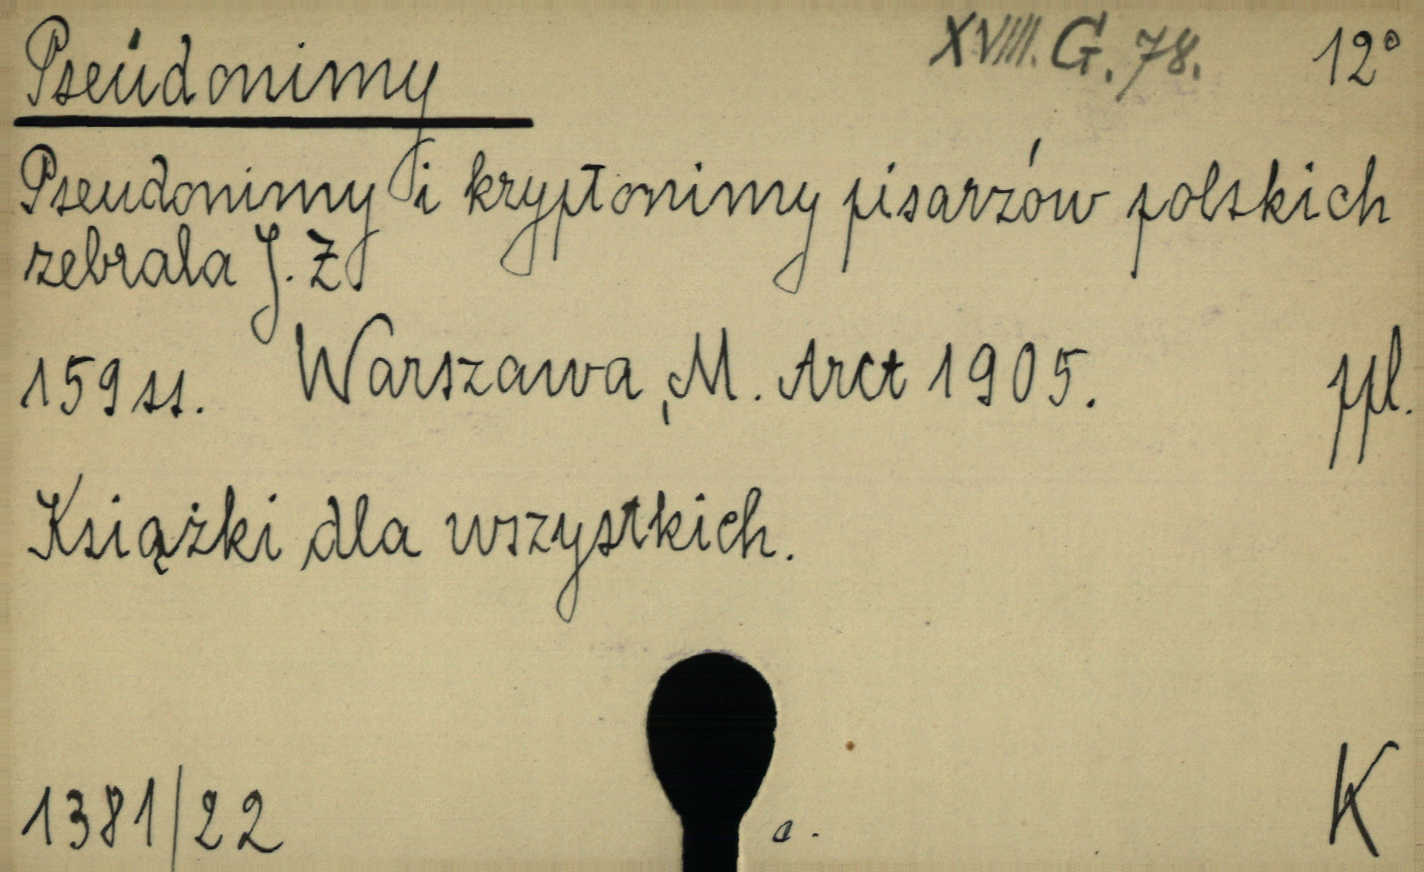 Pseudonimy XVIII. G. 78. 12°
Pseudonimy i kryptonimy pisarzów polskich
zebrała J. Z.
159 ss. Warszawa, M. Arct 1905. ppl.
Książki dla wszystkich.
1381/22 a. K